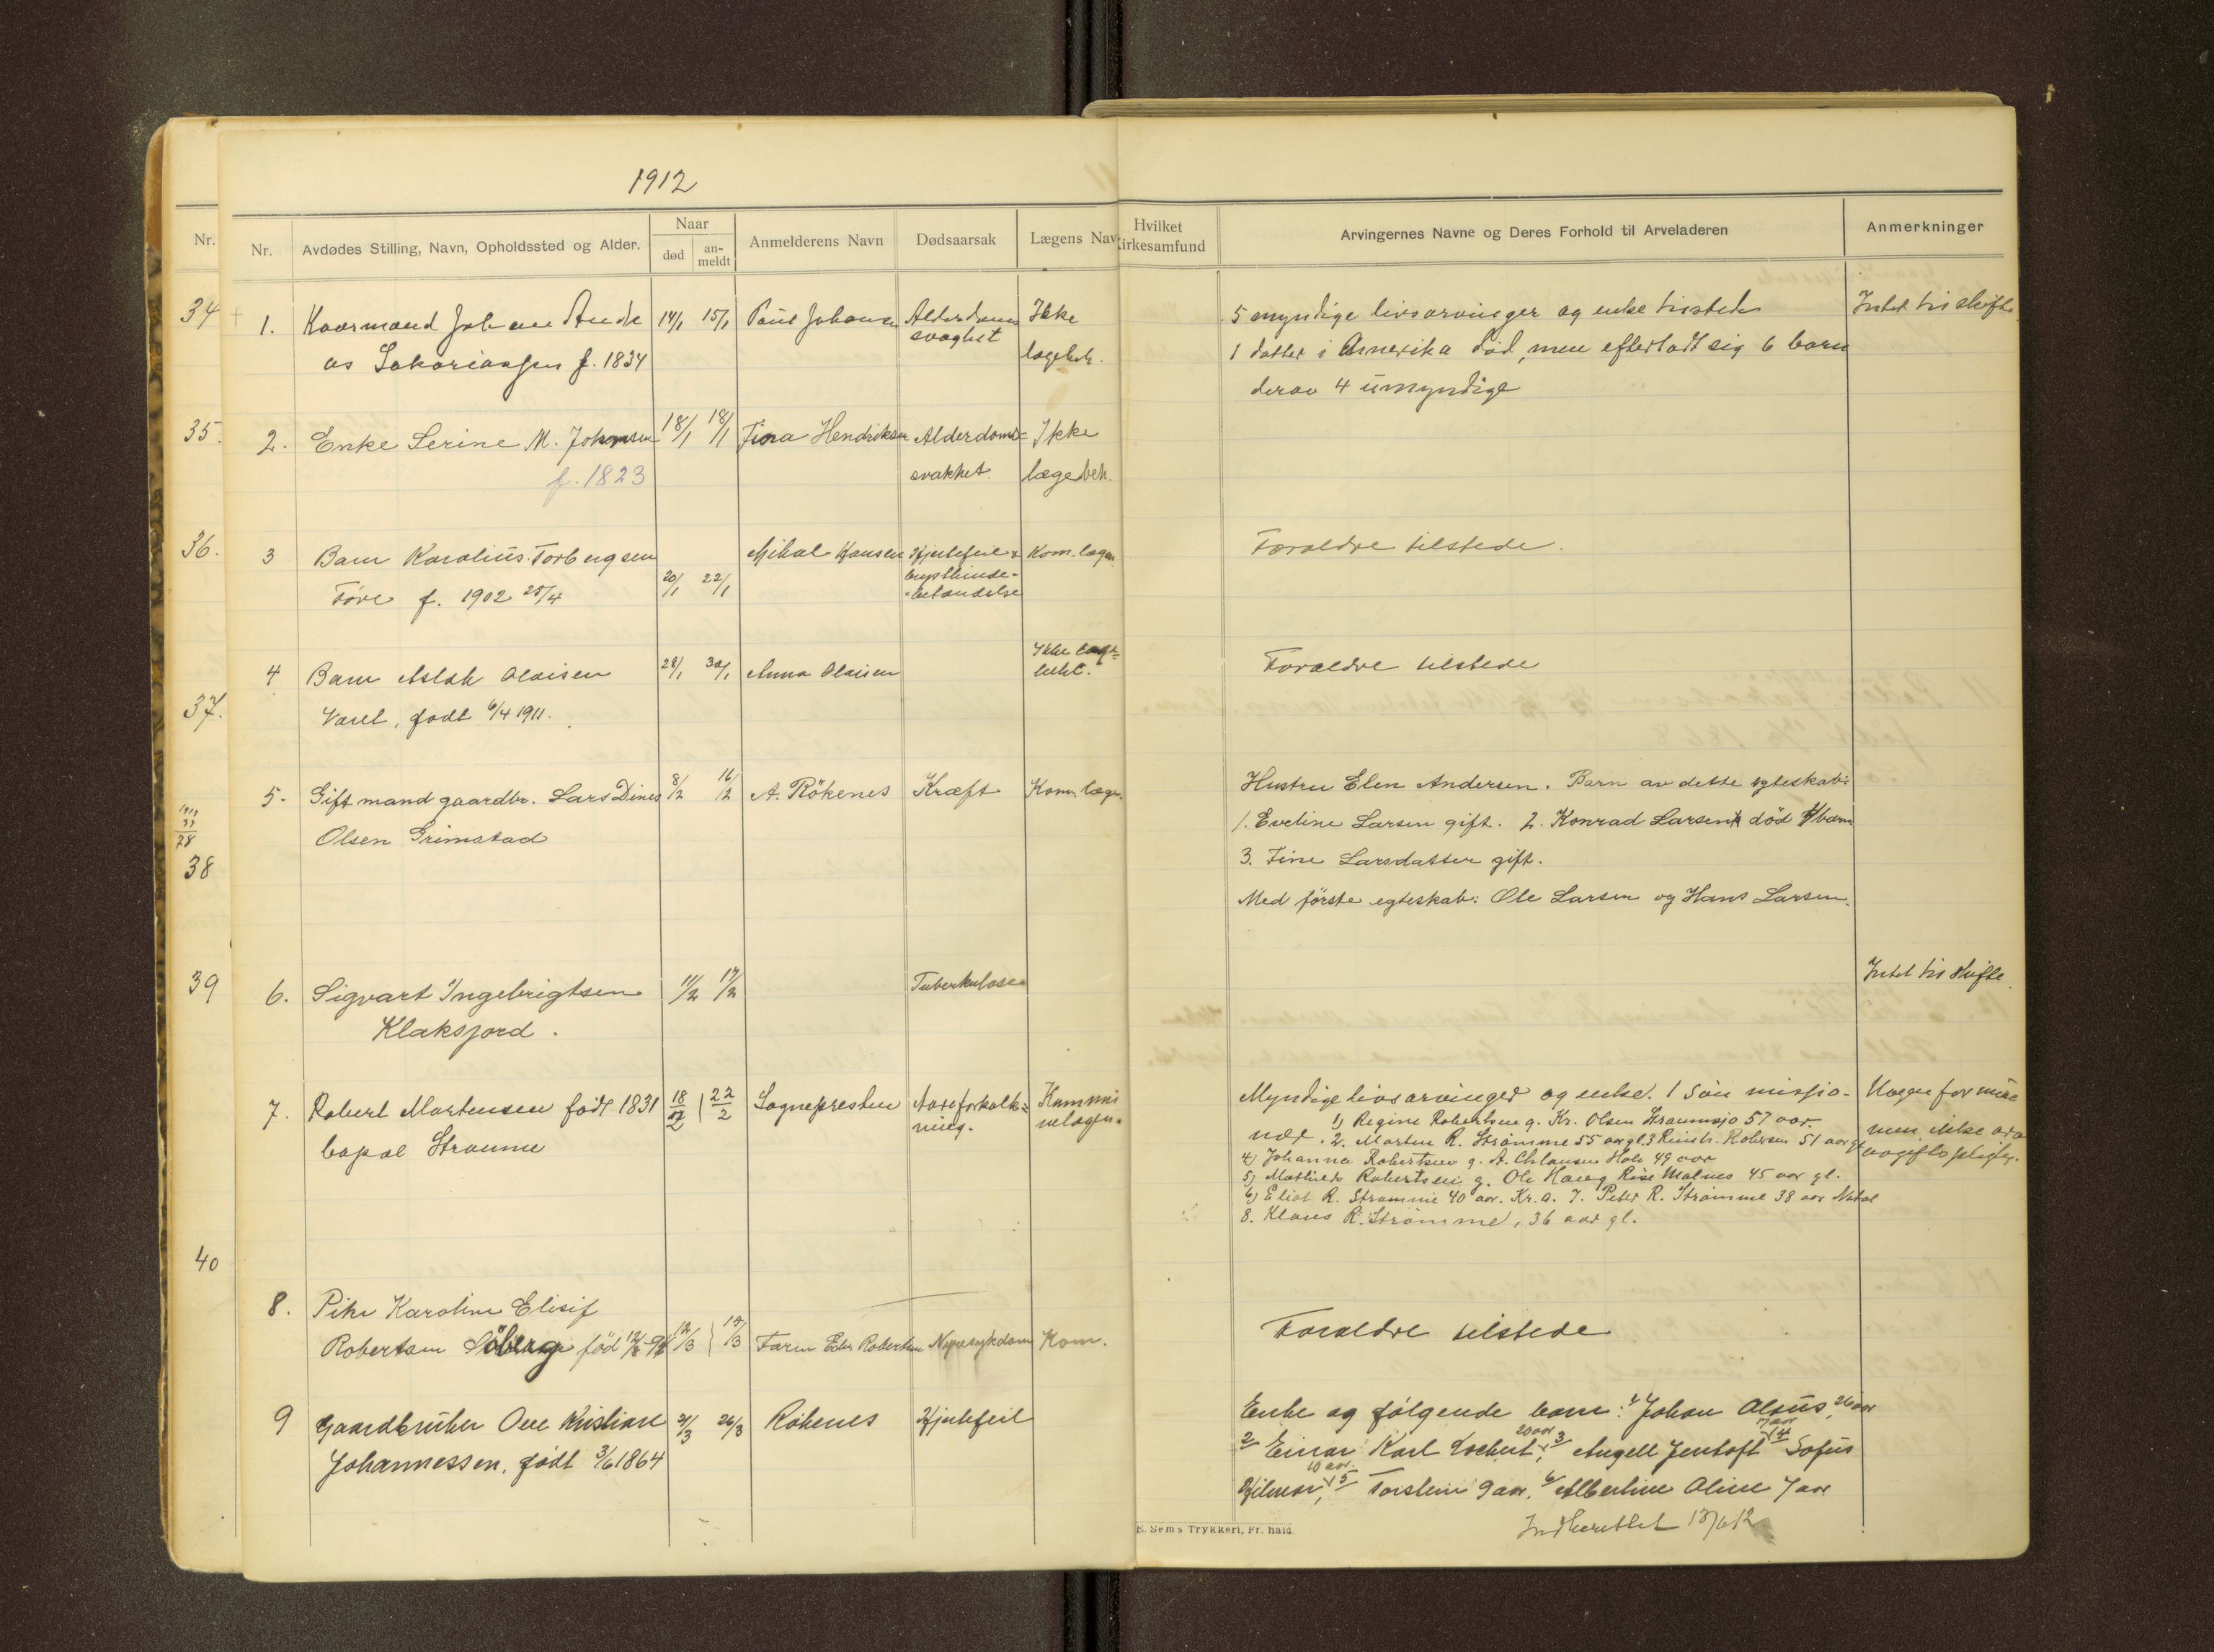 1912
Nr.
Nr.
Avdødes Stilling, Navn, Opholdssted og Alder.
Naar
død
an-
meldt
Anmelderens Navn
Dødsaarsak
Lægens Nav
Hvilket
irkesamfund
Arvingernes Navne og Deres Forhold til Arveladeren
Anmerkninger
34
1. Kaarmand Johan Andr 14/1 15/1 Paul Johansen Alderdoms Ikke
as Sakariassen f. 1834 svaghet lægebeh.
5 myndige livsarvinger og enke tilstede Intet til skifte
1 datter i Amerika død, men efterladt sig 6 barn
derav 4 umyndige
35.
2. Enke Serine M. Johnsen 18/1 18/1 Fina Hendriksen Alderdoms= Ikke
f. 1823 svakhet. lægebeh.
36.
3 Barn Karolius Torbergsen Mikal Hansen Hjertefeil & Kom. lægen
Føre f. 1902 25/4 20/1 22/1 brysthinde-
betændelse
Foraldre tilstede.
37.
4 Barn Aslak Olaisen 28/1 30/1 Anna Olaisen Ikke læge=
Varet, født 6/4 1911.
Foraldre tilstede
38
5. Gift mand gaardbr. Lars Dines 8/2 16/2 A. Rökenes Kræft Kom. læge.
Olsen Grimstad
Hustru Elen Andersen. Barn av dette egteskab:
1. Eveline Larsen gift. 2. Konrad Larsen død 4 barn
3. Fine Larsdatter gift.
Med förste egteskab: Ole Larsen og Hans Larsen.
39
6. Sigvart Ingebrigtsen 11/2 17/2 Tuberkulose
Klaksjord.
Intet til skifte.
7. Robert Mortensen født 1831 18/2 22/2 Sognepresten Aareforkalk= Kommu
bopæl Straume ning. nelægen.
Myndige livsarvinger og enke. 1 sön missjo- Nogen formue
1) Regine Robertsen g. Kr. Olsen Straumsjö 57 aar.
nær. 2. Morten R. Strömme 55 aar gl. 3 Reinh. Robersen 51 aar gl men ikke arv
4) Johanna Robertsen g. A. Chlausen Hole 49 aar avgiftspligtig.
5) Mathilde Robertsen g. Ole Haug Rise Malnes 45 aar gl.
6) Eliot R. Strömme 40 aar. Kr.a. 7. Peter R. Strömme 38 aar Natal
8. Klaus R. Strömme, 36 aar gl.
40
8. Pike Karoline Elisif
Robertsen Söberg født 12/3 13/3 Farm Edv. Robertsen Nyresykdom Kom.
Foraldre tilstede
9 Gaardbruker Ove Kristian 21/3 26/3 Rökenes Hjertefeil
Johannessen, født 3/6 1864
Enke og følgende barn: 1/ Johan Alsius, 26 aar
20 aar 17 aar
2 Einar Karl Lockert, 3 Angell Jentoft 4 Sofus
10 aar.
Hilmar, 5 Torstein 9 aar. 6/ Albertine Aline 7 aar
Indberettet 13/6 12
E. Sem's Trykkeri, Fr.hald